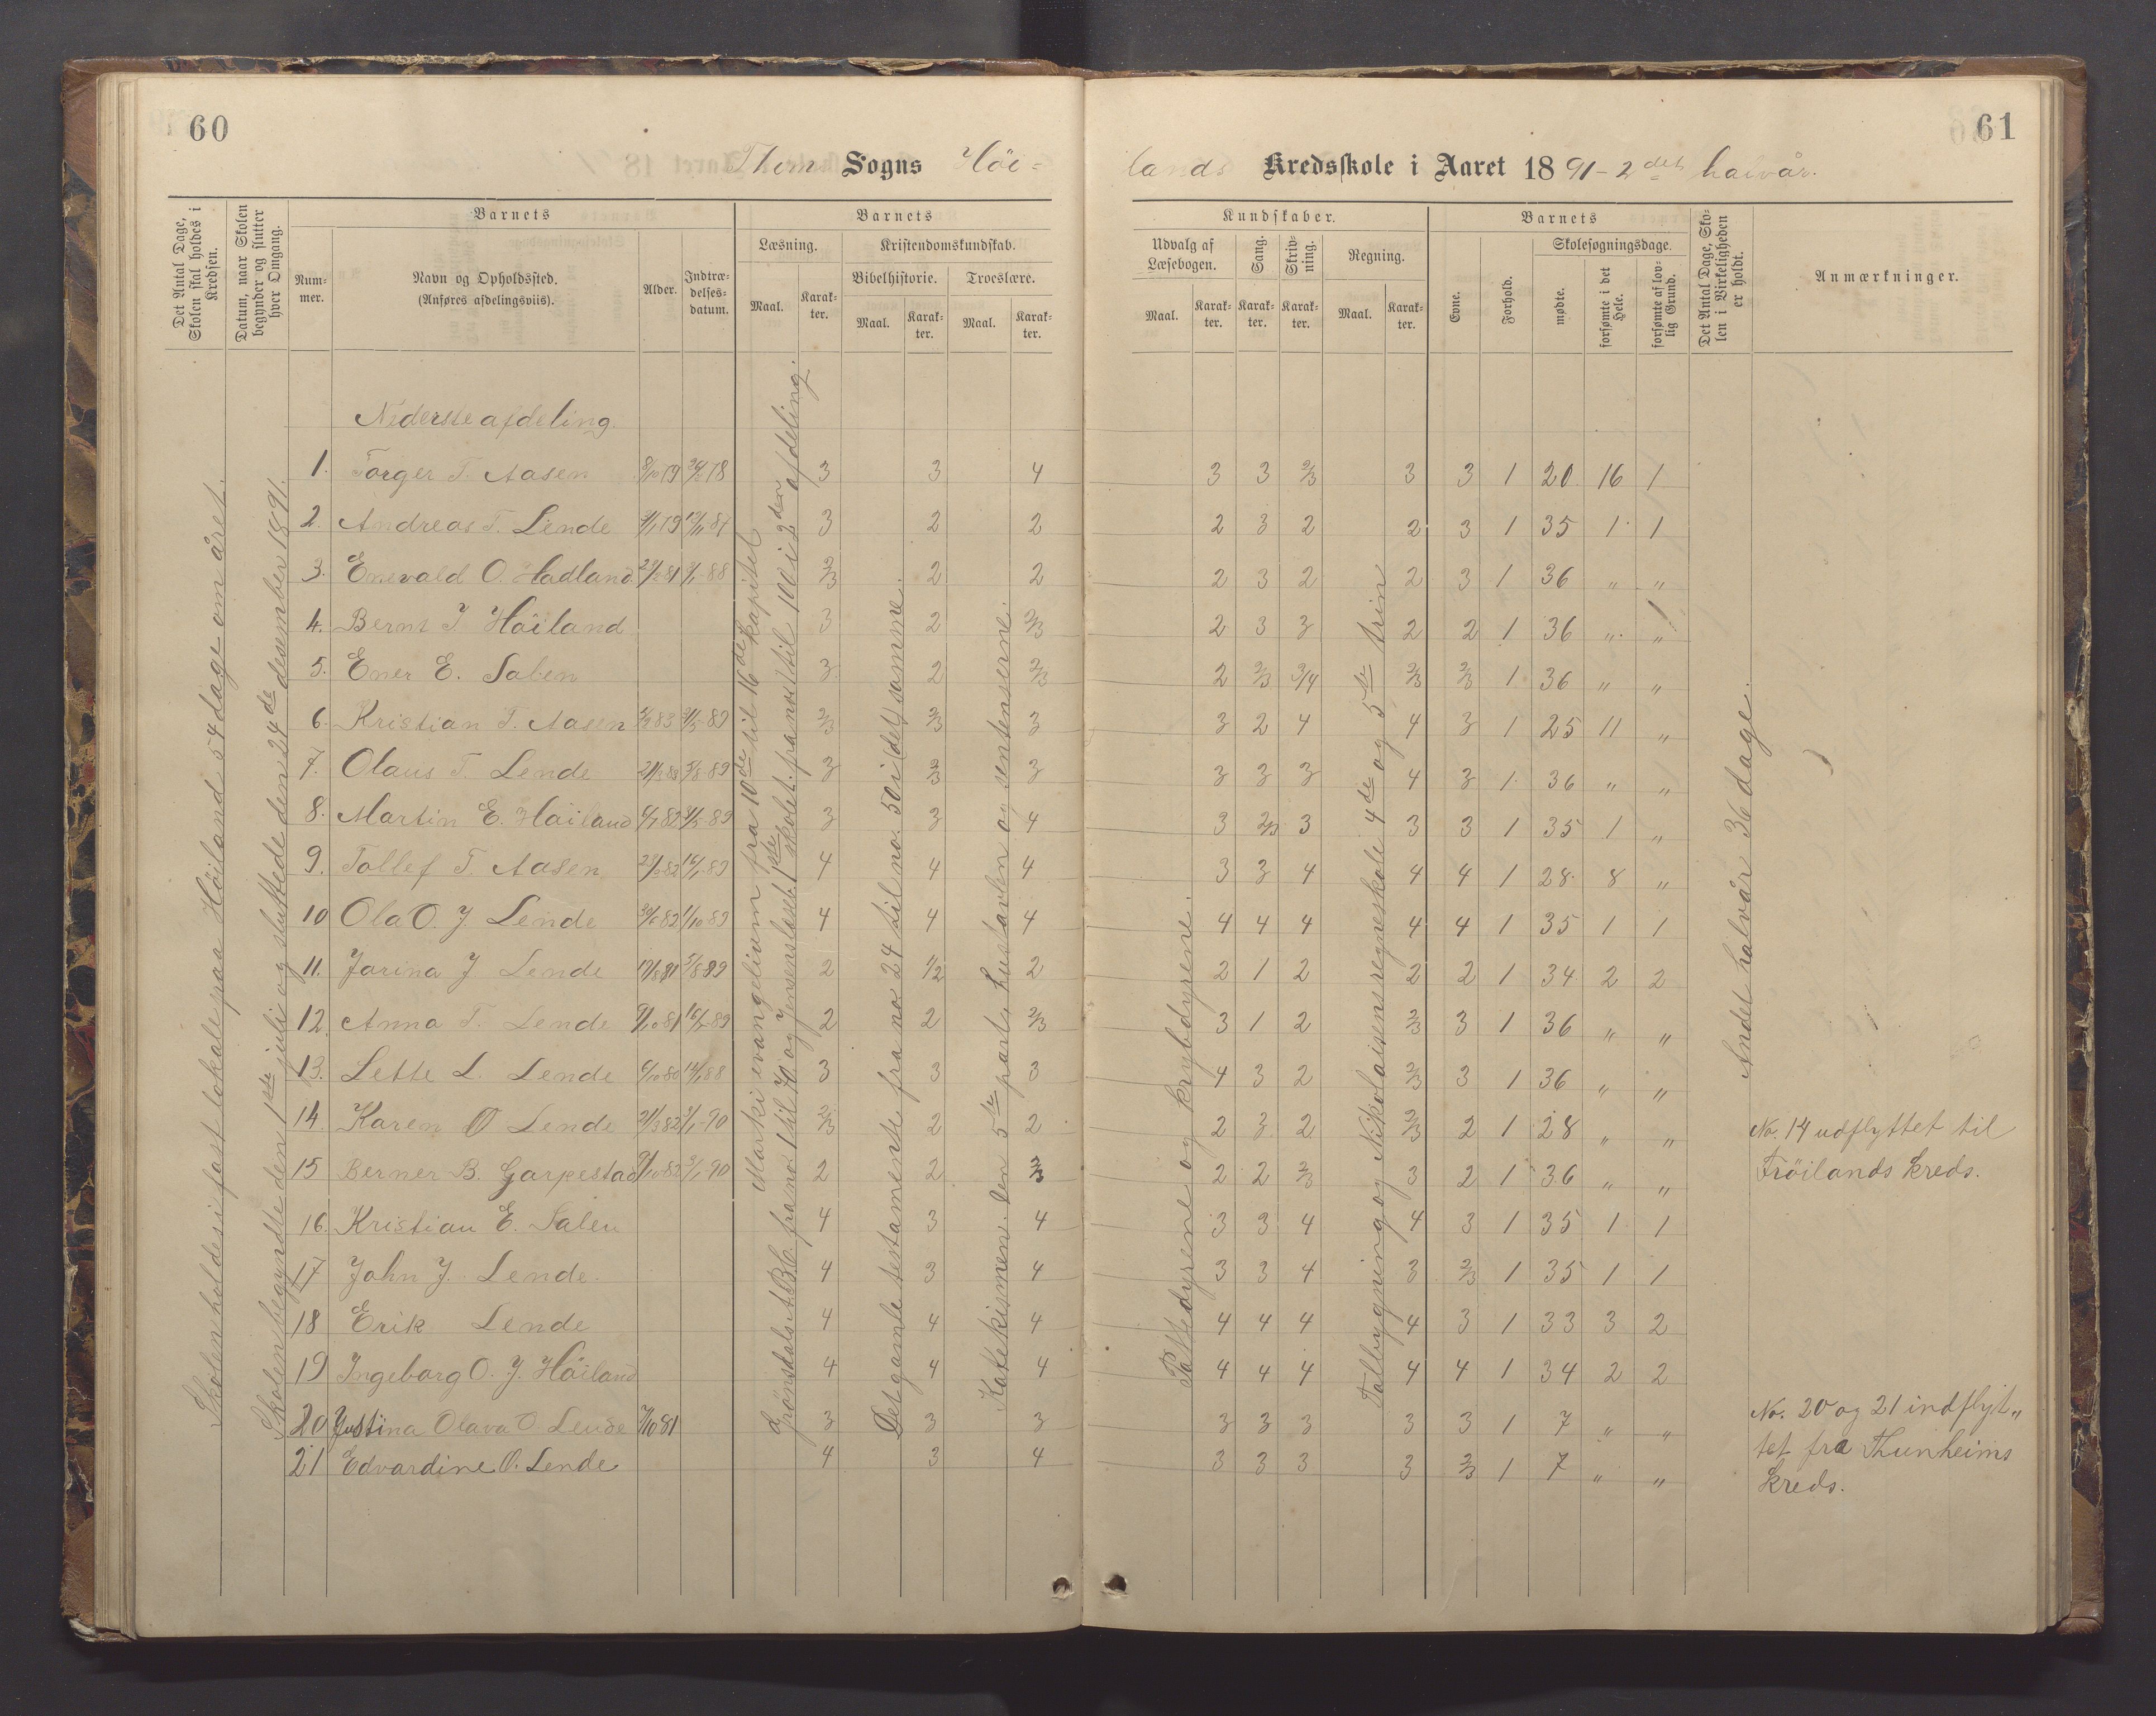 60
Thim Sogns Höi-
Det Antal Dage, Skolen skal holdes i Kredsen.
Datum, naar Skolen begynder og slutter hver Omgang.
Barnets
Num-mer.
Navn og Opholdssted.
(Anføres afdelingsviis).
Alder.
Indtræ-delses-datum.
Barnets
Læsning.
Maal.
Karak-ter.
Kristendomskundskab.
Bibelhistorie.
Maal.
Karak-ter.
Troeslære.
Maal.
Karak-ter.
Skolen holdes i fast lokale paa Höiland 54 dage om året.
Skolen begyndte den 1ste juli og sluttede den 24de desember 1891.
Marki evangelium fra 10de til 16de kapitel
Grönsdals A.B.C. fra no. 1 til 70 og Jensens læseb. 1ste skolet. fra no 1 til 100 i 2den afdeling.
Det gamle testamente fra no 24 til no. 50 i (det) samme.
Katekismen. Den 5te part, hustavlen og sentenserne.
Nederste afdeling.
1. Torger T. Aasen 8/10 79 78 3 3 4
2. Andreas T. Lende 79 87 3 2 2
3. Enevald O. Hadland 81 88 2/3 2 2
4. Bernt T Höiland 3 2 2/3
5. Ener E. Salen 3 2 2/3
6. Kristian T. Aasen 83 89 2/3 2/3 3
7. Olaus T. Lende 83 89 3 2/3 3
8. Martin E. Höiland 82 89 3 3 4
9. Tollef T. Aasen 82 89 4 4 4
10 Ola O. J. Lende 30/6 82 1/10 89 4 4 4
11. Jorina J Lende 81 89 2 1/2 2
12. Anna T. Lende 81 89 2 2 2/3
13. Lette L. Lende 6/10 80 88 3 3 3
14. Karen O Lende 21/3 82 90 2/3 2 2
15 Berner B. Garpestad 82 90 2 2 2/3
16. Kristian E. Salen 4 3 4
17 John J. Lende. 4 3 4
18 Erik Lende 4 4 4
19 Ingeborg O. J. Höiland 4 4 4
20 Justina Olava O. Lende 7/10 81 3 3 3
21 Edvardine O. Lende 4 3 4
61
lands Kredsskole i Aaret 1891-2det halvår.
Kundskaber.
Udvalg af Læsebogen.
Maal.
Karak-ter.
Sang.
Karak-ter.
Skriv-ning.
Karak-ter.
Regning.
Maal.
Karak-ter.
Barnets
Evne.
Forhold.
Skolesøgningsdage.
mødte.
forsømte i det Hele.
forsømte af lov-lig Grund.
Det Antal Dage, Sko-len i Virkeligheden er holdt.
Anmærkninger.
Pattedyrene og krybdyrene.
Talbygning og Nikolaisens regneskole 4de og 5te trin
Andet halvår 36 dage.
3 3 2/3 3 3 1 20 16 1
2 3 2 2 3 1 35 1 1
2 3 2 2 3 1 36 " "
2 3 3 2 2 1 36 " "
2 2/3 3/4 2/3 2/3 1 36 " "
3 2 4 4 3 1 25 11 "
3 3 3 4 3 1 36 " "
3 2/3 3 3 3 1 35 1 "
3 3 4 4 4 1 28 8 "
4 4 4 4 4 1 35 1 1
2 1 2 2 2 1 34 2 2
3 1 2 2/3 3 1 36 " "
4 3 2 2/3 3 1 36 " "
2 3 2 2/3 2 1 28 " "
No. 14 udflyttet til
2 2 2/3 3 2 1 36 " "
Fröilands kreds.
3 3 4 4 3 1 35 1 1
3 3 4 3 2/3 1 35 1 1
4 4 4 4 3 1 33 3 2
4 4 4 4 4 1 34 2 2
3 3 3 3 3 1 7 " "
No. 20 og 21 indflyt„
3 3 3 3 2/3 1 7 " "
tet fra Thunheims
kreds.